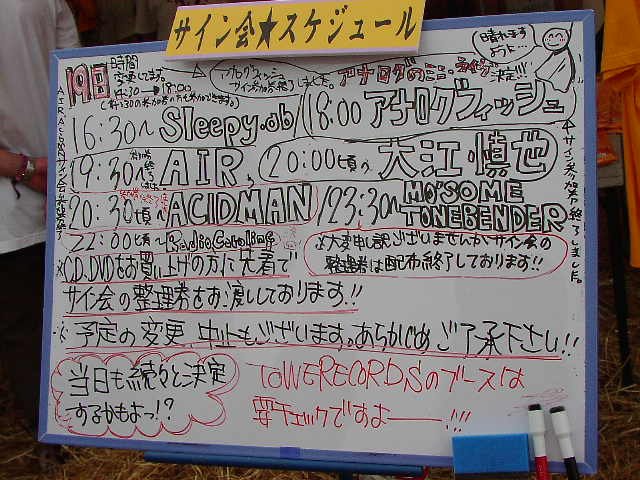 サイン会★スケジュール
晴れます
ように…
19日
時間
変更してます。
14:30→18:00
アナログフィッシュ
サイン参加券終了しました。
アナログのミニ・ライブ決定!!!
16:30〜Sleepy.ab
18:00 アナログフィッシュ
19:30〜AIR
20:00頃〜大江慎也
20:30頃〜ACIDMAN
23:30〜MO'SOME
TONEBENDER
22:00頃〜Radio Caroline
サイン参加券終了しました。
※CD、DVDをお買い上げの方に先着で
サイン会の整理券をお渡ししております!!
※大変申し訳ございませんがサイン会の
整理券は配布終了しております!!
※予定の変更、中止もございます。あらかじめご了承下さい!!
当日も続々と決定
するかもよっ!?
TOWERECORDSのブースは
要チェックですよー!!!